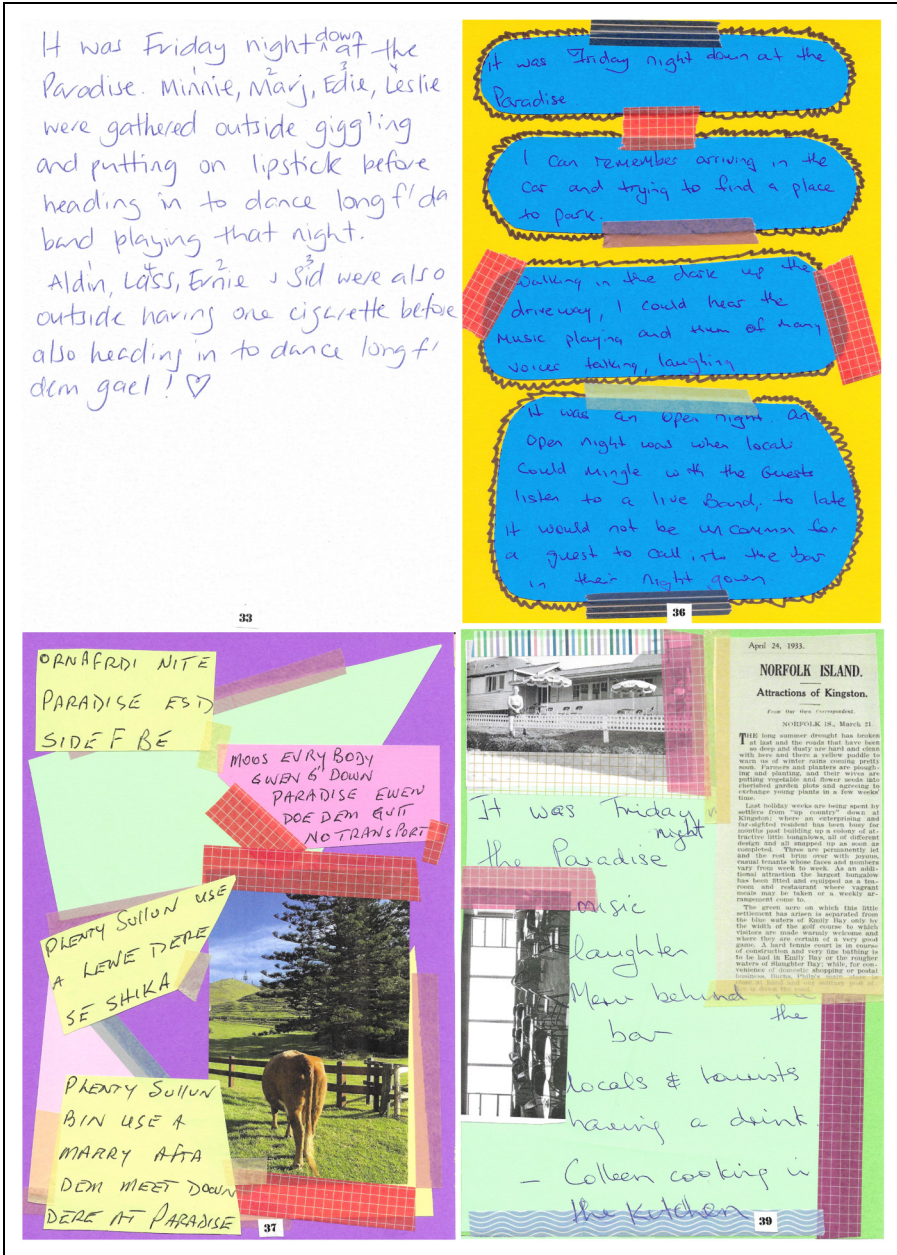 It was Friday night down at the
Paradise. Minnie, Marj, Edie, Leslie
1 2 3 4
were gathered outside giggling
and putting on lipstick before
heading in to dance long f' da
band playing that night.
Aldin, Lass, Ernie & Sid were also
1 4 2 3
outside having one cigarette before
also heading in to dance long f'
dem gael! ♡
33
It was Friday night down at the
Paradise.
I can remember arriving in the
car and trying to find a place
to park.
Walking in the dark up the
driveway, I could hear the
Music playing and hum of many
voices talking, laughing
It was an open night. an
open night was when locals
could mingle with the Guests
listen to a live Band, to late
it would not be uncommon for
a guest to call into the bar
in their night gown.
36
ORNAFRDI NITE
PARADISE ESTD
SIDE F BE
MOOS EVRY BODY
GWEN G' DOWN
PARADISE EWEN
DOE DEM GUT
NO TRANSPORT
PLENTY SULLUN USE
A KEWE DERE
SE SHIKA
PLENTY SULLUN
BIN USE A
MARRY AFTA
DEM MEET DOWN
DERE AT PARADISE
37
April 24, 1933.
NORFOLK ISLAND.
Attractions of Kingston.
From Our Own Correspondent.
NORFOLK IS., March 21.
THE long summer drought has broken
at last and the roads that have been
so deep and dusty are hard and clean
with here and there a yellow puddle to
warn us of winter rains coming pretty
soon. Farmers and planters are plough-
ing and planting, and their wives are
putting vegetable and flower seeds into
cherished garden plots and agreeing to
exchange young plants in a few weeks'
time.
Last holiday weeks are being spent by
settlers from "up country" down at
Kingston; where an enterprising and
far-sighted resident has been busy for
months past building up a colony of at-
tractive little bungalows, all of different
design and all snapped up as soon as
completed. Three are permanently let
and the rest brim over with joyous,
casual tenants whose faces and numbers
vary from week to week. As an addi-
tional attraction the largest bungalow
has been fitted and equipped as a tea-
room and restaurant where vagrant
meals may be taken or a weekly ar-
rangement come to.
The green acre on which this little
settlement has arisen is separated from
the blue waters of Emily Bay only by
the width of the golf course to which
visitors are made warmly welcome and
where they are certain of a very good
game. A hard tennis court is in course
of construction and very fine bathing is
to be had in Emily Bay or the rougher
waters of Slaughter Bay; while, for con-
venience of domestic shopping or postal
business, Burns, Philp's main store is
close at hand and our solitary post of-
fice is down the road.
It was Friday
night
the Paradise
music
laughter
Menu behind
the
bar
locals & tourists
having a drink.
- Colleen cooking in
the kitchen
39